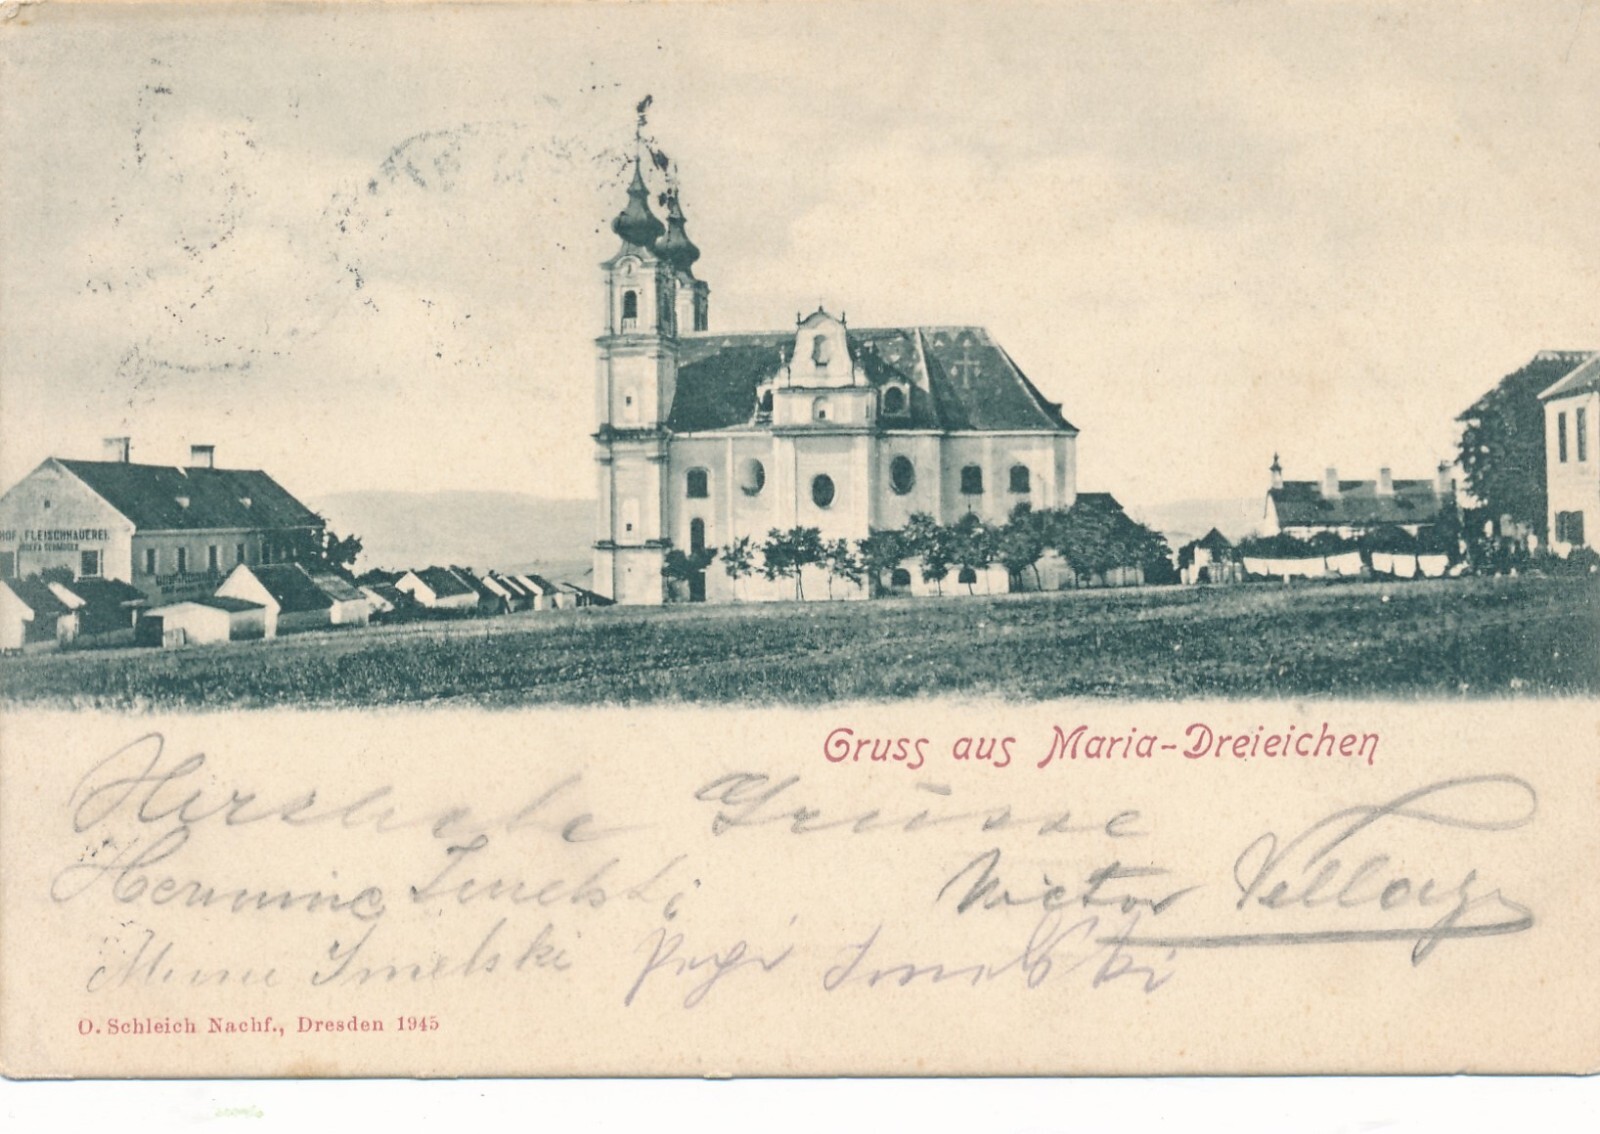 HOF u. FLEISCHHAUEREI
Gruss aus Maria-Dreieichen
Herzliche Grüsse
Hermine Smelski
Victor
Minna Smelski Pepi Smelski
O. Schleich Nachf., Dresden 1945